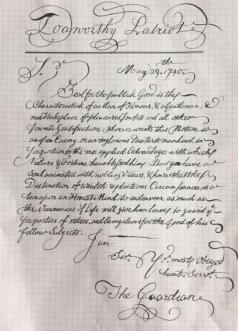 Toaworthy Patriot
Sr.
May 29th 1740
Zeal for the publick Good is the
Characteristick of a Man of Honour, & a Gentleman, &
must take place of pleasures, Profits and all other
Private Gratifications; whoever wants this Motive, is
an open Enemy, or an inglorious Neuter to mankind, in
proportion to the misapplied Advantages with which
Nature & Fortune have blessed him; But you have a
Soul animated with nobler Views, & know that the
Distinction of Wealth & plenteous Circumstances is
a tax upon an Honest Mind to endeavour, as much as
the Occurrences of Life will give him leave, to guard
Properties of others, and be vigilant for the Good of his
Fellow Subjects.
I am
Sir, Yr. most Obliged
Humble Servt.
The Guardian